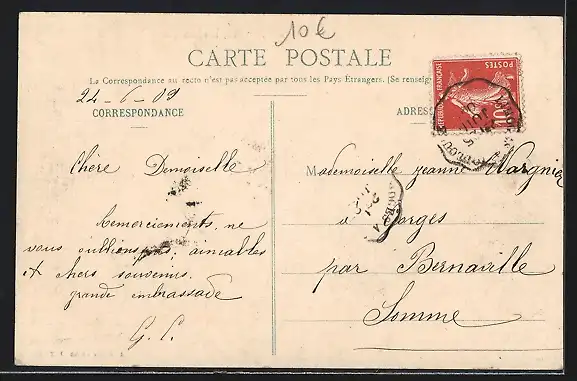 10€
CARTE POSTALE
La Correspondance au recto n'est pas acceptée par tous les Pays Etrangers. (Se renseig
24-6-09
CORRESPONDANCE
ADRES
POSTES
REPUBLIQUE FRANÇAISE
10
Chère Demoiselle
Remerciements, ne
vous oublions pas, aimables
et chers souvenirs.
grande embrassade
G. C.
Mademoiselle Jeanne Wargnier
à Gorges
par Bernaville
Somme